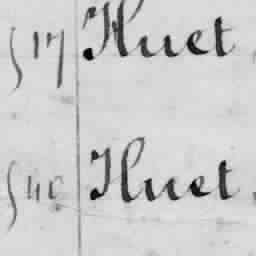 517 Huet
540 Huet.